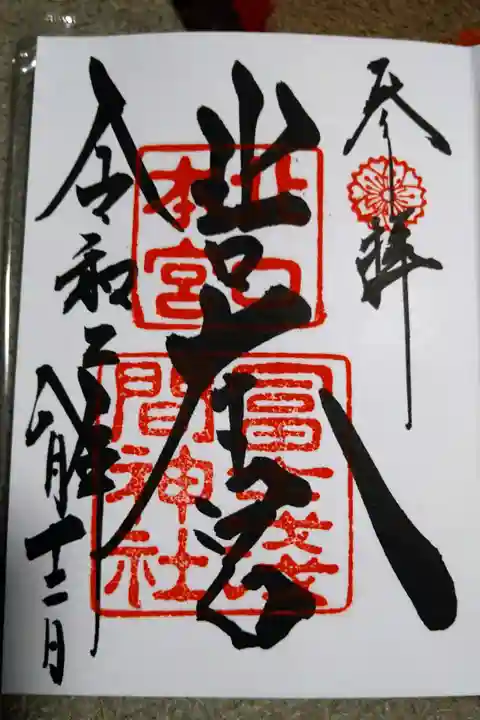 参拝
北口本宮
令和二年
八月十二日
北口
本宮
冨士浅
間神社